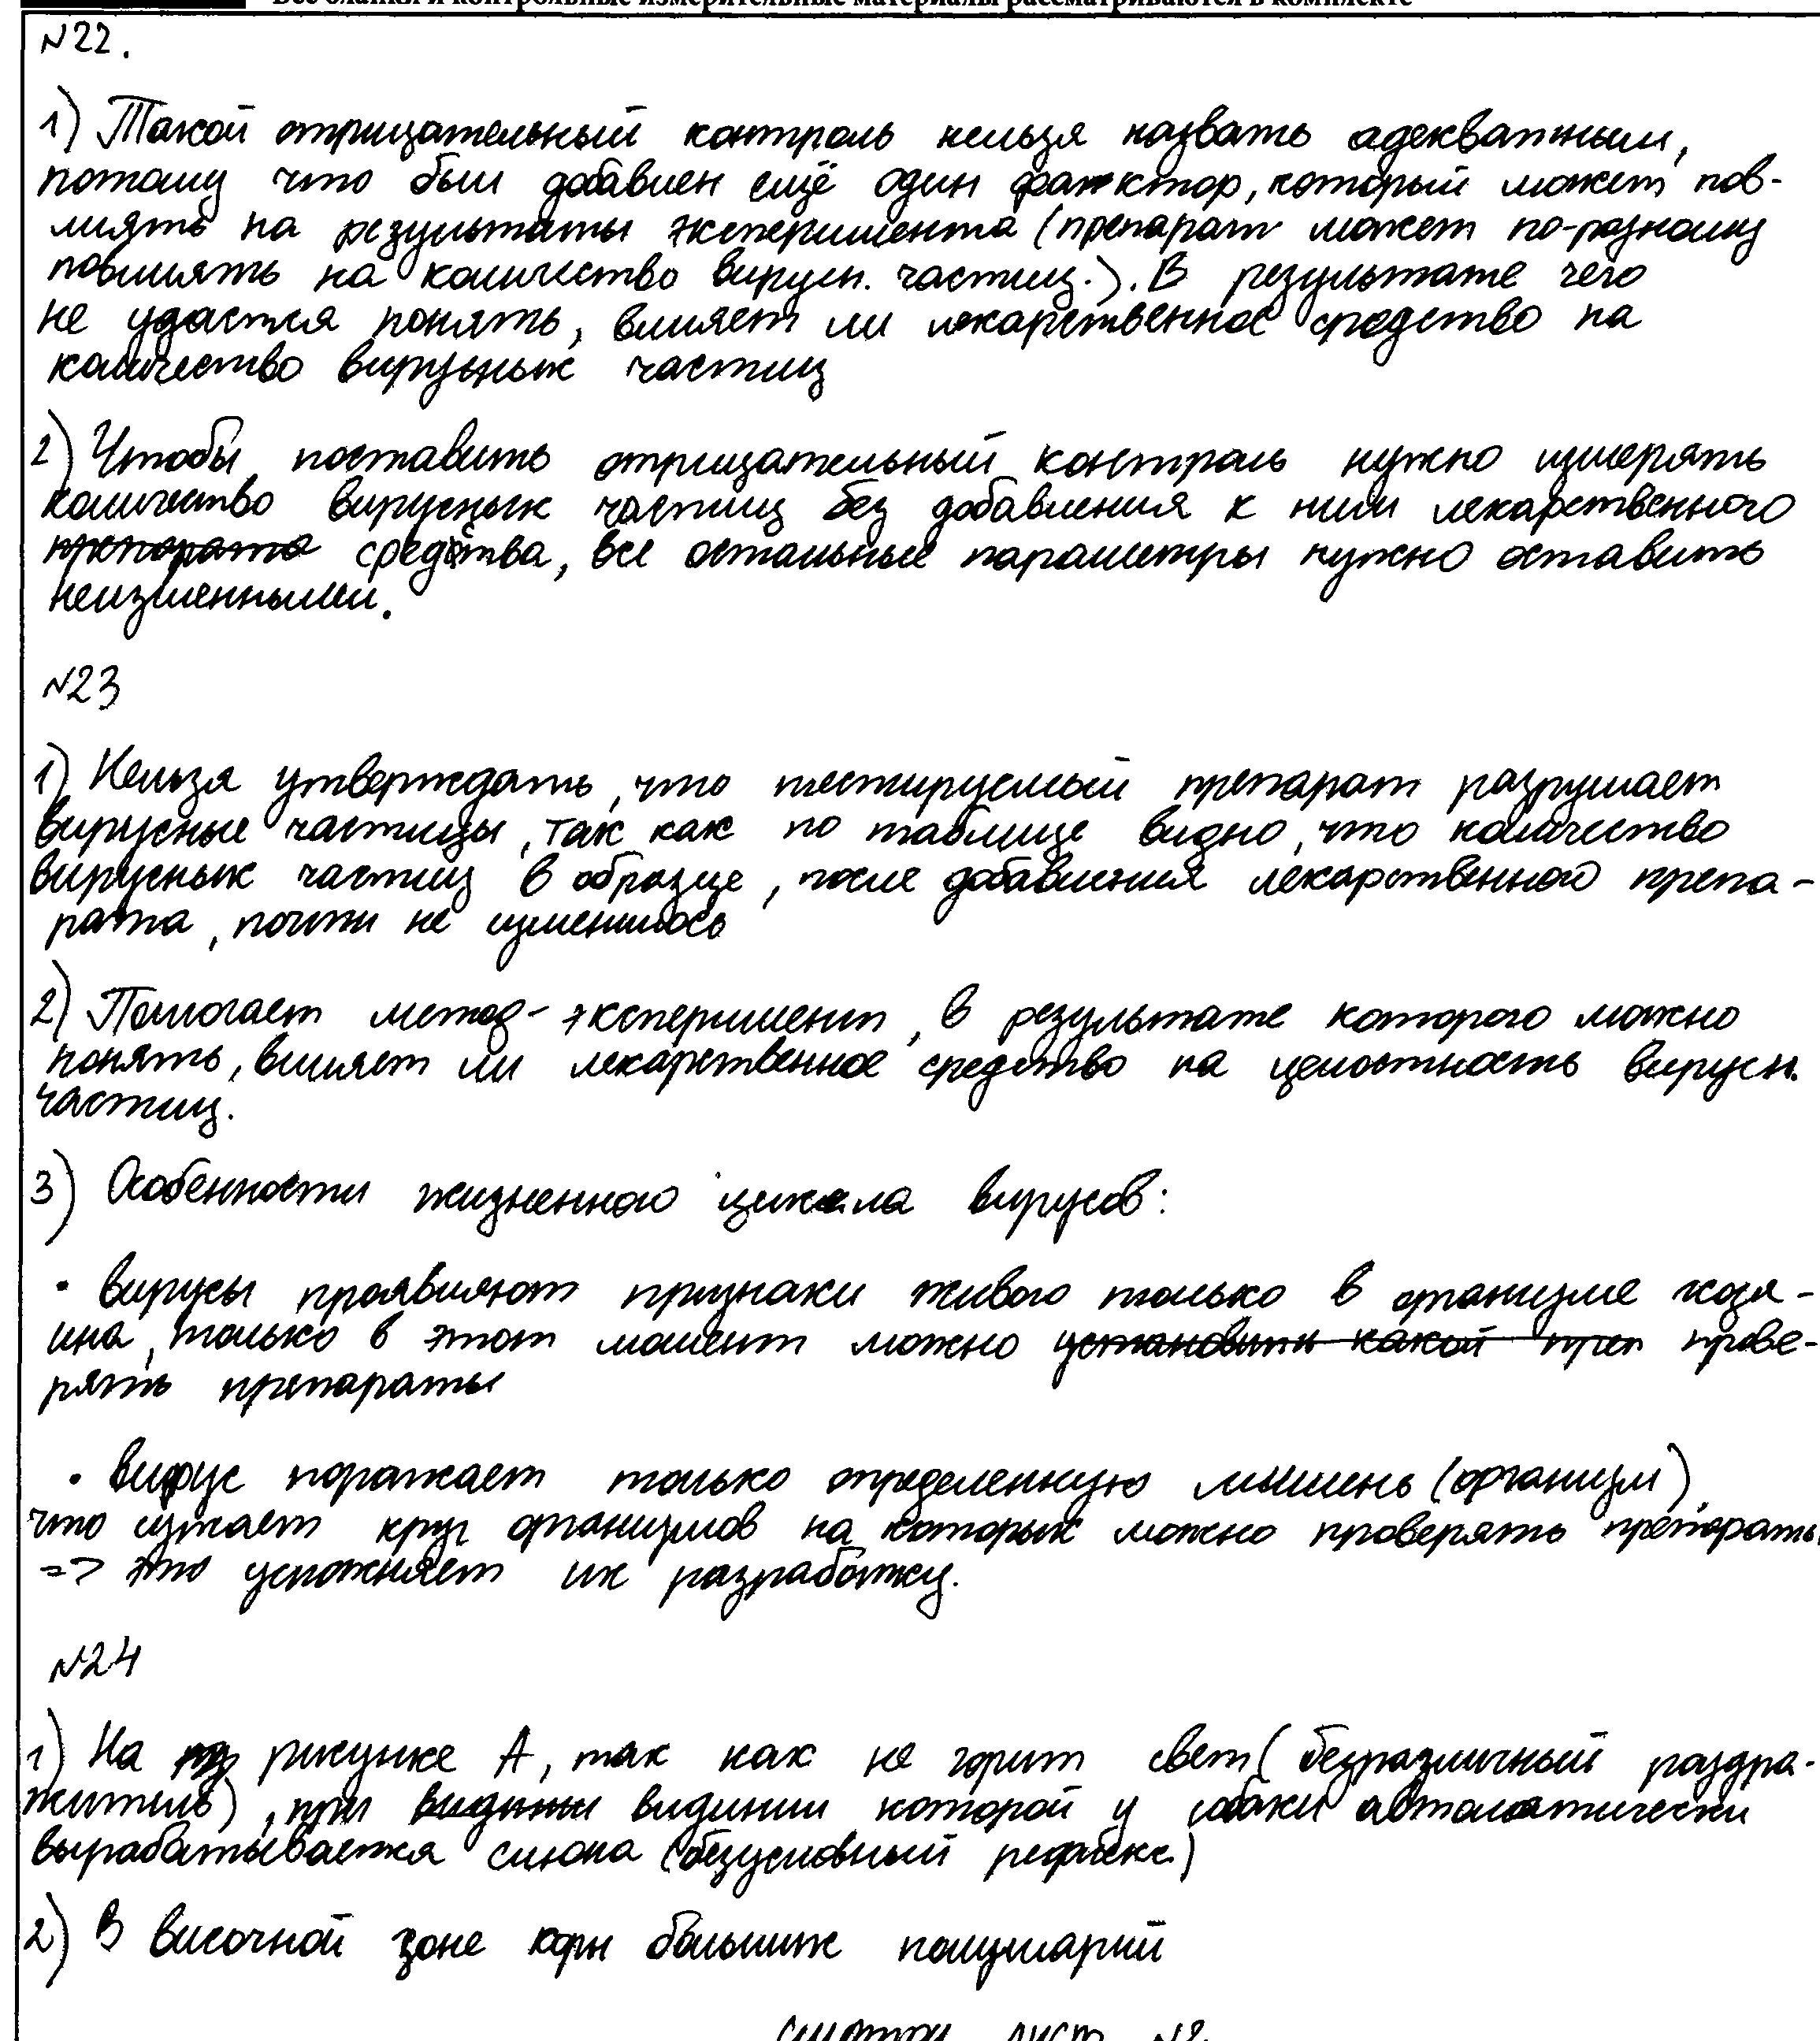 Все бланки и контрольные измерительные материалы рассматриваются в комплекте
№22.
1) Такой отрицательный контроль нельзя назвать адекватным,
потому что был добавлен ещё один фактор, который может пов-
лиять на результаты эксперимента (препарат может по-разному
повлиять на количество вирусн. частиц.). В результате чего
не удастся понять, влияет ли лекарственное средство на
количество вирусных частиц
2) Чтобы поставить отрицательный контроль нужно измерять
количество вирусных частиц без добавления к ним лекарственного
препарата средства, все остальные параметры нужно оставить
неизменными.
№23
1) Нельзя утверждать, что тестируемый препарат разрушает
вирусные частицы, так как по таблице видно, что количество
вирусных частиц в образце, после добавления лекарственного препа-
рата, почти не изменилось
2) Помогает метод - эксперимент, в результате которого можно
понять, влияет ли лекарственное средство на целостность вирусн.
частиц.
3) Особенности жизненного цикла вирусов:
• вирусы проявляют признаки живого только в организме хозя-
ина, только в этот момент можно установить какой преп прове-
рять препараты
• вирус поражает только определенную мишень (организм),
что сужает круг организмов на которых можно проверять препараты
=> это усложняет их разработку.
№24
1) На рисунке А, так как не горит свет (безразличный раздра-
житель), при видении которой у собаки автоматически
вырабатывается слюна (безусловный рефлекс)
2) В височной зоне коры больших полушарий
смотри лист №2